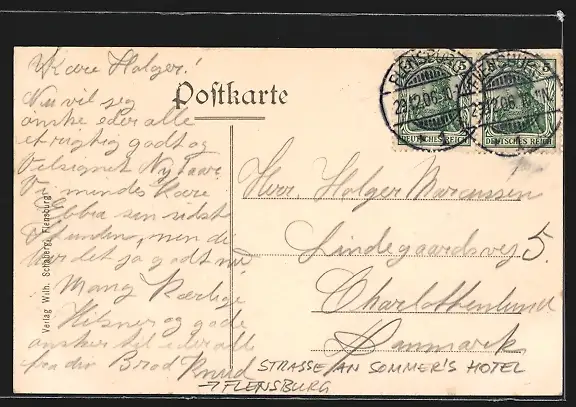 Kære Holger!
Nu vil jeg
ønske eder alle
et rigtig godt og
Velsignet Nytaar
Vi mindes Kære
Ebba sin sidste
Stunden, men de
har det jo godt nu.
Mang Kærlige
Hilsner og gode
ønsker til eder alle
fra din Brod Knud
Postkarte
Verlag Wilh. Schaberg, Flensburg
FLENSBURG
DEUTSCHES REICH
DEUTSCHES REICH
Herr. Holger Marcussen
Lindegaardsvej 5.
Charlottenlund
Danmark
STRASSE AN SOMMER'S HOTEL
→FLENSBURG